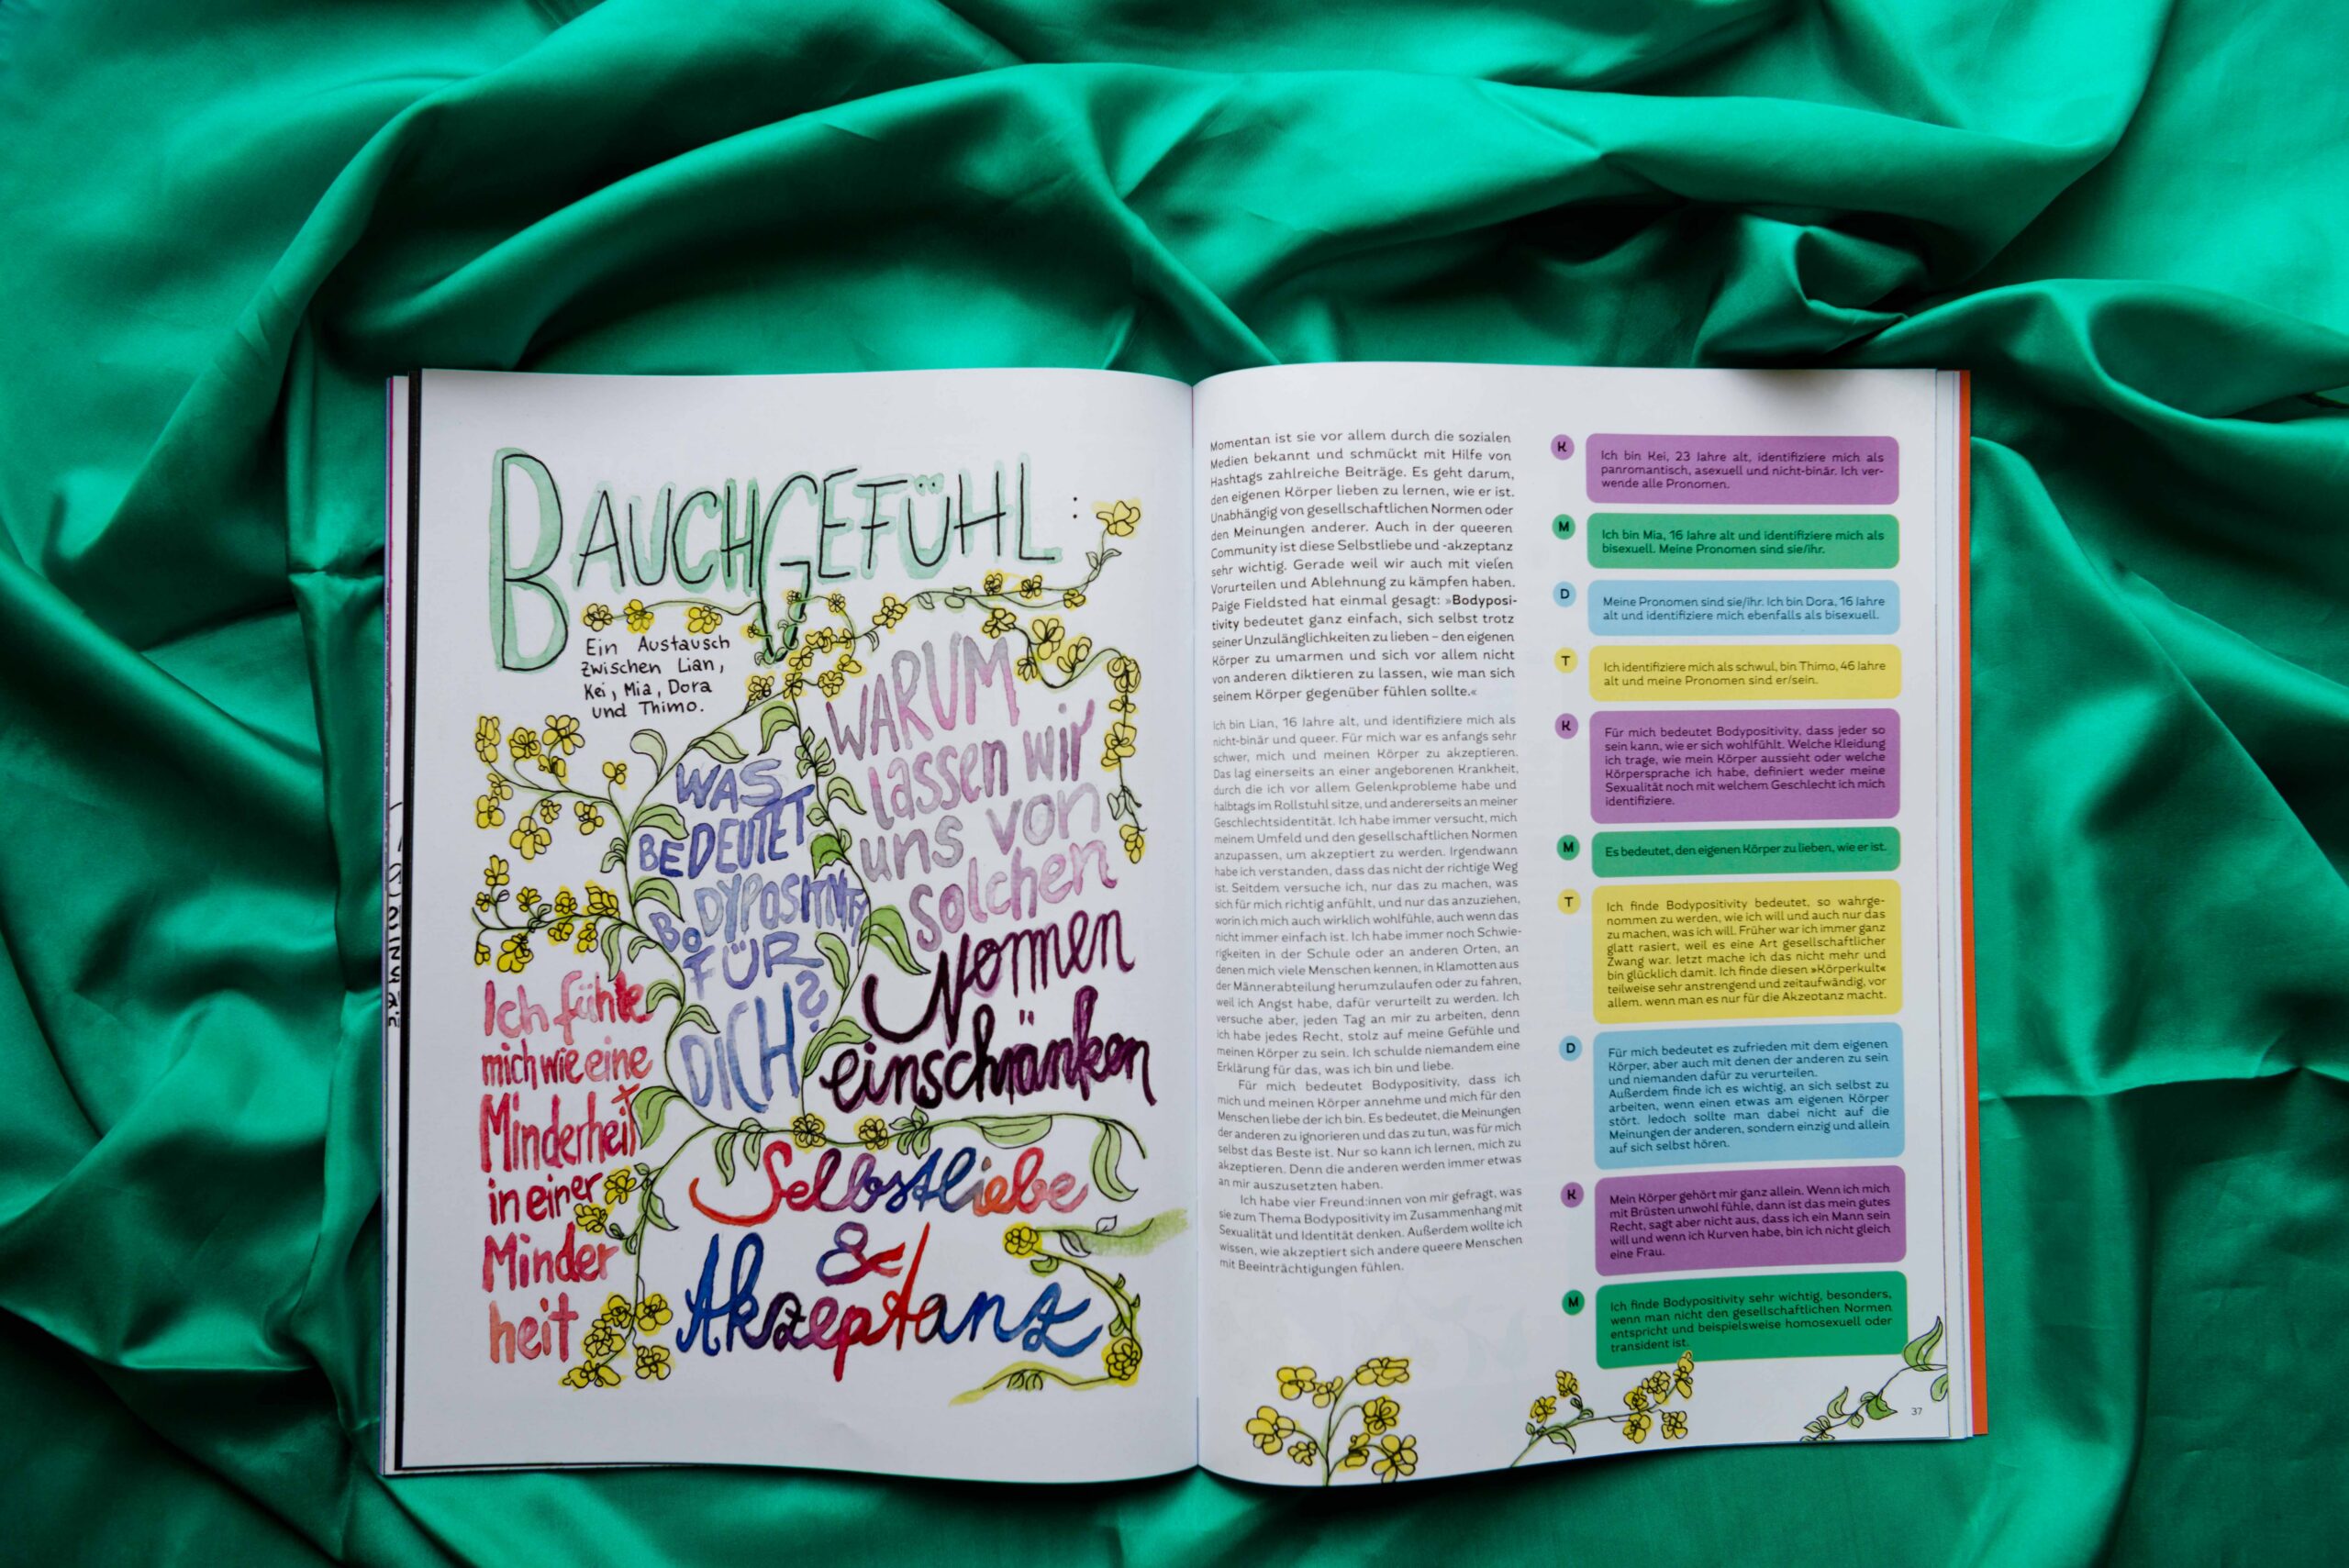 BAUCHGEFÜHL:
Ein Austausch
zwischen Lian,
Kei, Mia, Dora
und Thimo.
WAS
BEDEUTET
BODYPOSITIVITY
FÜR
DICH?
WARUM
lassen wir
uns von
solchen
Normen
einschränken
Ich fühle
mich wie eine
Minderheit
in einer
Minder
heit
Selbstliebe
&
Akzeptanz
Momentan ist sie vor allem durch die sozialen
Medien bekannt und schmückt mit Hilfe von
Hashtags zahlreiche Beiträge. Es geht darum,
den eigenen Körper lieben zu lernen, wie er ist.
Unabhängig von gesellschaftlichen Normen oder
den Meinungen anderer. Auch in der queeren
Community ist diese Selbstliebe und -akzeptanz
sehr wichtig. Gerade weil wir auch mit vielen
Vorurteilen und Ablehnung zu kämpfen haben.
Paige Fieldsted hat einmal gesagt: »Bodyposi-
tivity bedeutet ganz einfach, sich selbst trotz
seiner Unzulänglichkeiten zu lieben – den eigenen
Körper zu umarmen und sich vor allem nicht
von anderen diktieren zu lassen, wie man sich
seinem Körper gegenüber fühlen sollte.«
Ich bin Lian, 16 Jahre alt, und identifiziere mich als
nicht-binär und queer. Für mich war es anfangs sehr
schwer, mich und meinen Körper zu akzeptieren.
Das lag einerseits an einer angeborenen Krankheit,
durch die ich vor allem Gelenkprobleme habe und
halbtags im Rollstuhl sitze, und andererseits an meiner
Geschlechtsidentität. Ich habe immer versucht, mich
meinem Umfeld und den gesellschaftlichen Normen
anzupassen, um akzeptiert zu werden. Irgendwann
habe ich verstanden, dass das nicht der richtige Weg
ist. Seitdem versuche ich, nur das zu machen, was
sich für mich richtig anfühlt, und nur das anzuziehen,
worin ich mich auch wirklich wohlfühle, auch wenn das
nicht immer einfach ist. Ich habe immer noch Schwie-
rigkeiten in der Schule oder an anderen Orten, an
denen mich viele Menschen kennen, in Klamotten aus
der Männerabteilung herumzulaufen oder zu fahren,
weil ich Angst habe, dafür verurteilt zu werden. Ich
versuche aber, jeden Tag an mir zu arbeiten, denn
ich habe jedes Recht, stolz auf meine Gefühle und
meinen Körper zu sein. Ich schulde niemandem eine
Erklärung für das, was ich bin und liebe.
Für mich bedeutet Bodypositivity, dass ich
mich und meinen Körper annehme und mich für den
Menschen liebe der ich bin. Es bedeutet, die Meinungen
der anderen zu ignorieren und das zu tun, was für mich
selbst das Beste ist. Nur so kann ich lernen, mich zu
akzeptieren. Denn die anderen werden immer etwas
an mir auszusetzten haben.
Ich habe vier Freund:innen von mir gefragt, was
sie zum Thema Bodypositivity im Zusammenhang mit
Sexualität und Identität denken. Außerdem wollte ich
wissen, wie akzeptiert sich andere queere Menschen
mit Beeinträchtigungen fühlen.
K
Ich bin Kei, 23 Jahre alt, identifiziere mich als
panromantisch, asexuell und nicht-binär. Ich ver-
wende alle Pronomen.
M
Ich bin Mia, 16 Jahre alt und identifiziere mich als
bisexuell. Meine Pronomen sind sie/ihr.
D
Meine Pronomen sind sie/ihr. Ich bin Dora, 16 Jahre
alt und identifiziere mich ebenfalls als bisexuell.
T
Ich identifiziere mich als schwul, bin Thimo, 46 Jahre
alt und meine Pronomen sind er/sein.
K
Für mich bedeutet Bodypositivity, dass jeder so
sein kann, wie er sich wohlfühlt. Welche Kleidung
ich trage, wie mein Körper aussieht oder welche
Körpersprache ich habe, definiert weder meine
Sexualität noch mit welchem Geschlecht ich mich
identifiziere.
M
Es bedeutet, den eigenen Körper zu lieben, wie er ist.
T
Ich finde Bodypositivity bedeutet, so wahrge-
nommen zu werden, wie ich will und auch nur das
zu machen, was ich will. Früher war ich immer ganz
glatt rasiert, weil es eine Art gesellschaftlicher
Zwang war. Jetzt mache ich das nicht mehr und
bin glücklich damit. Ich finde diesen »Körperkult«
teilweise sehr anstrengend und zeitaufwändig, vor
allem, wenn man es nur für die Akzeptanz macht.
D
Für mich bedeutet es zufrieden mit dem eigenen
Körper, aber auch mit denen der anderen zu sein
und niemanden dafür zu verurteilen.
Außerdem finde ich es wichtig, an sich selbst zu
arbeiten, wenn einen etwas am eigenen Körper
stört. Jedoch sollte man dabei nicht auf die
Meinungen der anderen, sondern einzig und allein
auf sich selbst hören.
K
Mein Körper gehört mir ganz allein. Wenn ich mich
mit Brüsten unwohl fühle, dann ist das mein gutes
Recht, sagt aber nicht aus, dass ich ein Mann sein
will und wenn ich Kurven habe, bin ich nicht gleich
eine Frau.
M
Ich finde Bodypositivity sehr wichtig, besonders,
wenn man nicht den gesellschaftlichen Normen
entspricht und beispielsweise homosexuell oder
transident ist.
37